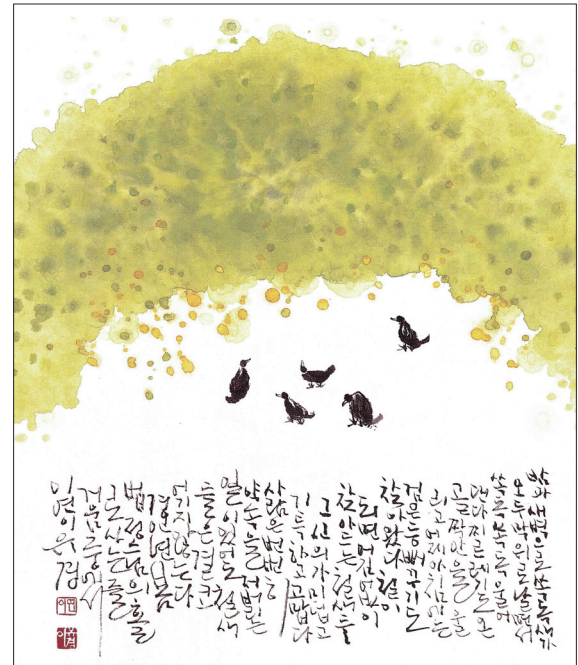 밤과 새벽으로 쏙독새가
오두막 위로 날면서
쏙독쏙독 울어
댄다 찌르레기도 온
골짝 안을 울
리고 어제 아침에는
검은등뻐꾸기도
찾아왔다 철이
되면 어김없이
찾아드는 철새들
그 신의가 미덥고
기특하고 고맙다
사람은 번번히
약속을 저버리는
일이 있어도 철새
들은 결코
어기지 않는다
경인년 봄
법정스님의 홀
로 사는 즐
거움 중에서